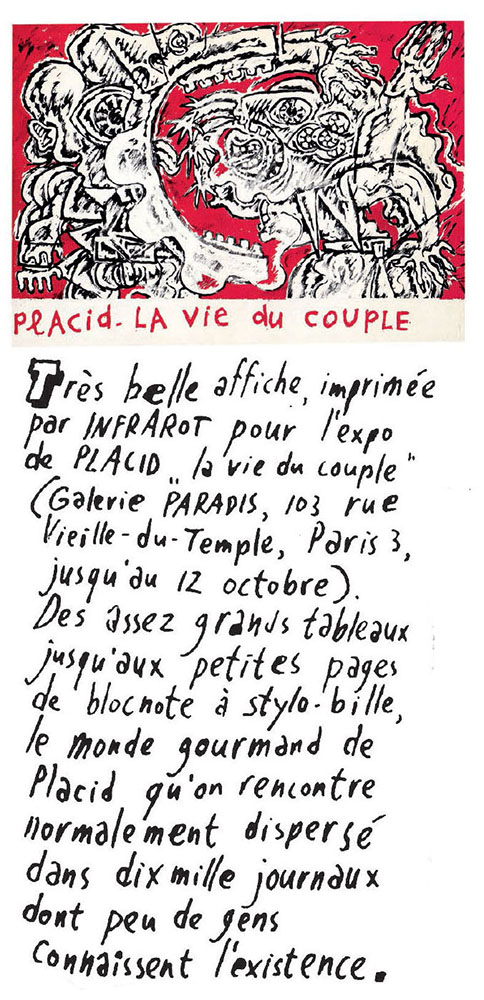 PLACid - LA Vie du COUPLE
Très belle affiche, imprimée
par INFRAROT pour l'expo
de PLACID „la vie du couple"
(Galerie PARADIS, 103 rue
Vieille-du-Temple, Paris 3,
jusqu'au 12 octobre).
Des assez grands tableaux
jusqu'aux petites pages
de blocnote à stylo-bille,
le monde gourmand de
Placid qu'on rencontre
normalement dispersé
dans dix mille journaux
dont peu de gens
connaissent l'existence.